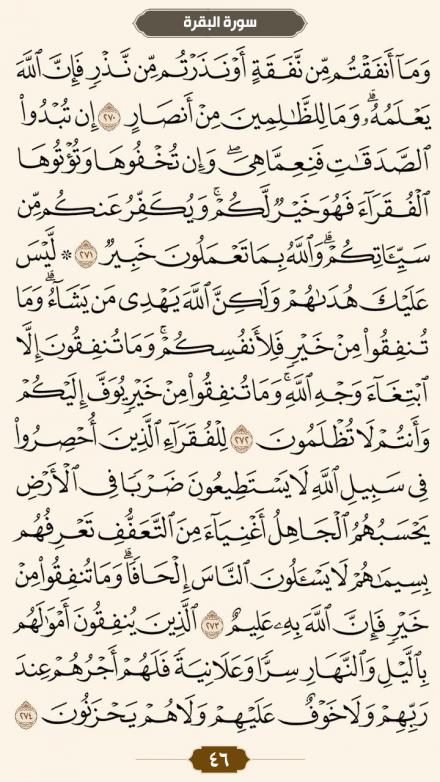 سورة البقرة
وَمَآ أَنفَقْتُم مِّن نَّفَقَةٍ أَوْ نَذَرْتُم مِّن نَّذْرٍ فَإِنَّ ٱللَّهَ
يَعْلَمُهُۥۗ وَمَا لِلظَّٰلِمِينَ مِنْ أَنصَارٍ ٢٧٠ إِن تُبْدُوا۟
ٱلصَّدَقَٰتِ فَنِعِمَّا هِىَۖ وَإِن تُخْفُوهَا وَتُؤْتُوهَا
ٱلْفُقَرَآءَ فَهُوَ خَيْرٌ لَّكُمْۚ وَيُكَفِّرُ عَنكُم مِّن
سَيِّـَٔاتِكُمْۗ وَٱللَّهُ بِمَا تَعْمَلُونَ خَبِيرٌ ٢٧١ ۞ لَّيْسَ
عَلَيْكَ هُدَىٰهُمْ وَلَٰكِنَّ ٱللَّهَ يَهْدِى مَن يَشَآءُۗ وَمَا
تُنفِقُوا۟ مِنْ خَيْرٍ فَلِأَنفُسِكُمْۚ وَمَا تُنفِقُونَ إِلَّا
ٱبْتِغَآءَ وَجْهِ ٱللَّهِۚ وَمَا تُنفِقُوا۟ مِنْ خَيْرٍ يُوَفَّ إِلَيْكُمْ
وَأَنتُمْ لَا تُظْلَمُونَ ٢٧٢ لِلْفُقَرَآءِ ٱلَّذِينَ أُحْصِرُوا۟
فِى سَبِيلِ ٱللَّهِ لَا يَسْتَطِيعُونَ ضَرْبًا فِى ٱلْأَرْضِ
يَحْسَبُهُمُ ٱلْجَاهِلُ أَغْنِيَآءَ مِنَ ٱلتَّعَفُّفِ تَعْرِفُهُم
بِسِيمَٰهُمْ لَا يَسْـَٔلُونَ ٱلنَّاسَ إِلْحَافًاۗ وَمَا تُنفِقُوا۟ مِنْ
خَيْرٍ فَإِنَّ ٱللَّهَ بِهِۦ عَلِيمٌ ٢٧٣ ٱلَّذِينَ يُنفِقُونَ أَمْوَٰلَهُم
بِٱلَّيْلِ وَٱلنَّهَارِ سِرًّا وَعَلَانِيَةً فَلَهُمْ أَجْرُهُمْ عِندَ
رَبِّهِمْ وَلَا خَوْفٌ عَلَيْهِمْ وَلَا هُمْ يَحْزَنُونَ ٢٧٤
٤٦